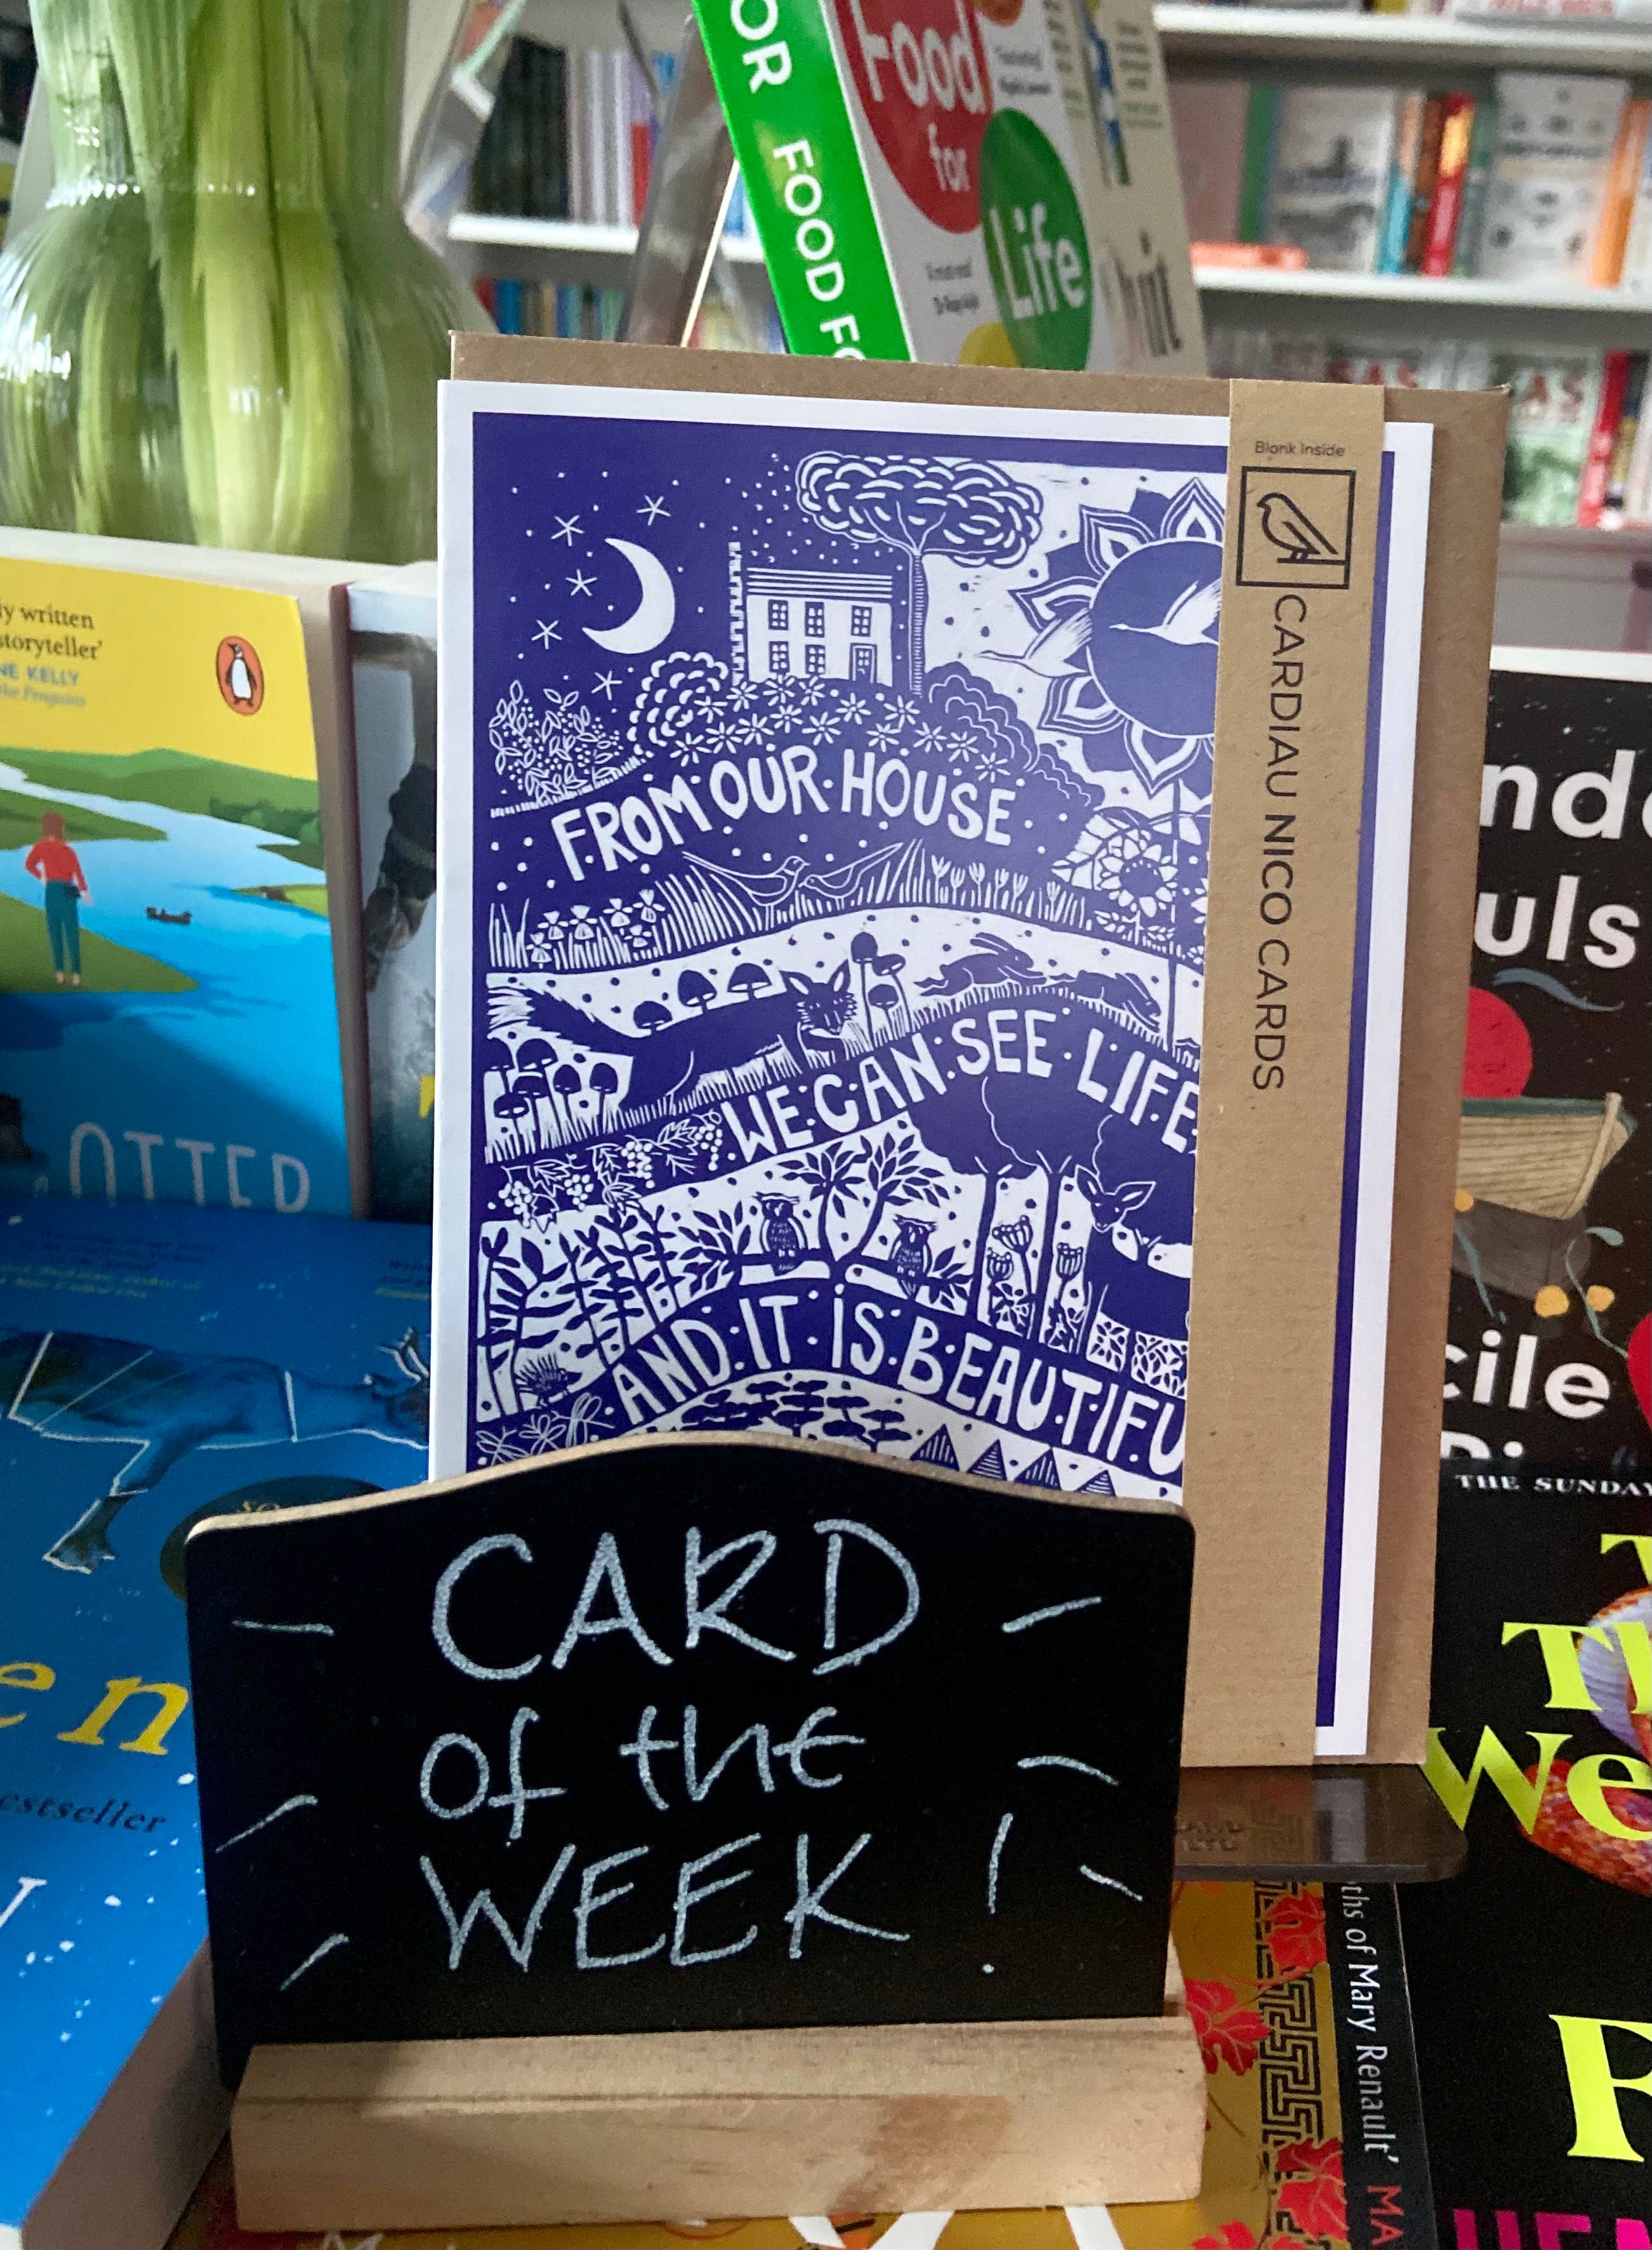 OR
FOOD FO
Food
for
Life
Blank Inside
CARDIAU NICO CARDS
FROM OUR HOUSE
WE CAN SEE LIFE
AND IT IS BEAUTIFU
CARD
of the
WEEK!
ly written
storyteller'
NE KELLY
OTTER
en
estseller
nd
uls
cile
THE SUNDAY
We
ths of Mary Renault'
MA